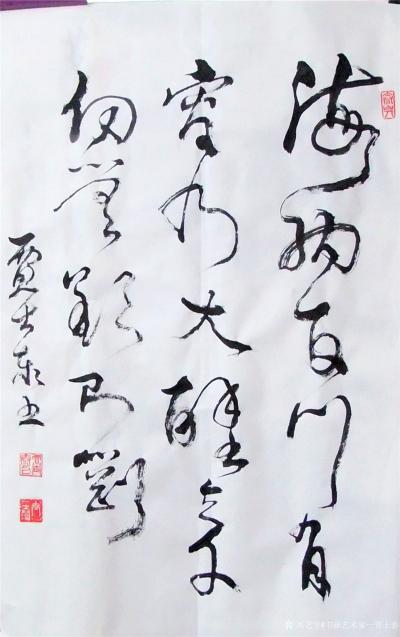 海纳百川有
容乃大壁立千
仞無欲则剛
贾士书